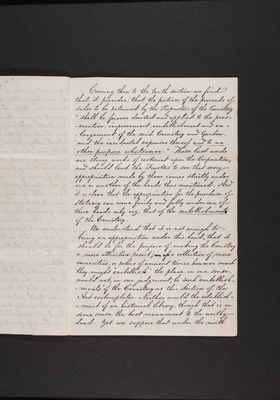 Coming then to the tenth section we find
that it provides, that the portion of the proceeds of
sales to be retained by the Proprietors of the Cemetery
"shall be forever devoted and applied to the pres-
-ervation, improvement, embellishment and en-
-largement of the said Cemetery and Garden
and the incidental expenses thereof and to no
other purpose whatsoever." These last words
are strong words of restraint upon the Corporation,
and should lead the Trustees to see that every
appropriation made by them comes strictly under
one or another of the heads thus mentioned. And
it is clear that the appropriation for the purchase of
statuary can come fairly and fully under one of
these heads only viz: that of the embellishment
of the Cemetery.
We understand that it is not enough to
bring an appropriation under this head, that it
should be for the purpose of making the Cemetery
a more attractive resort; a collection of, mere
curiosities, or relics of ancient times however much
they might embellish the place in one sense,
would not in our judgment be such embellish-
-ments of the Cemetery as this section of the
Act contemplates. Neither would the establish-
-ment of an historical library, though that is in
some sense the best monument to the worthy
dead. Yet we suppose that under the